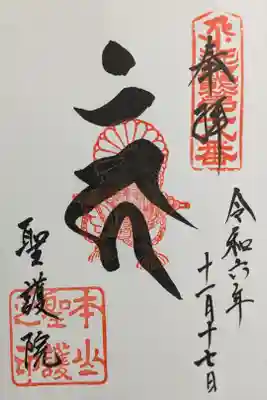 奉拝
令和六年
十一月十七日
聖護院
本山
聖護